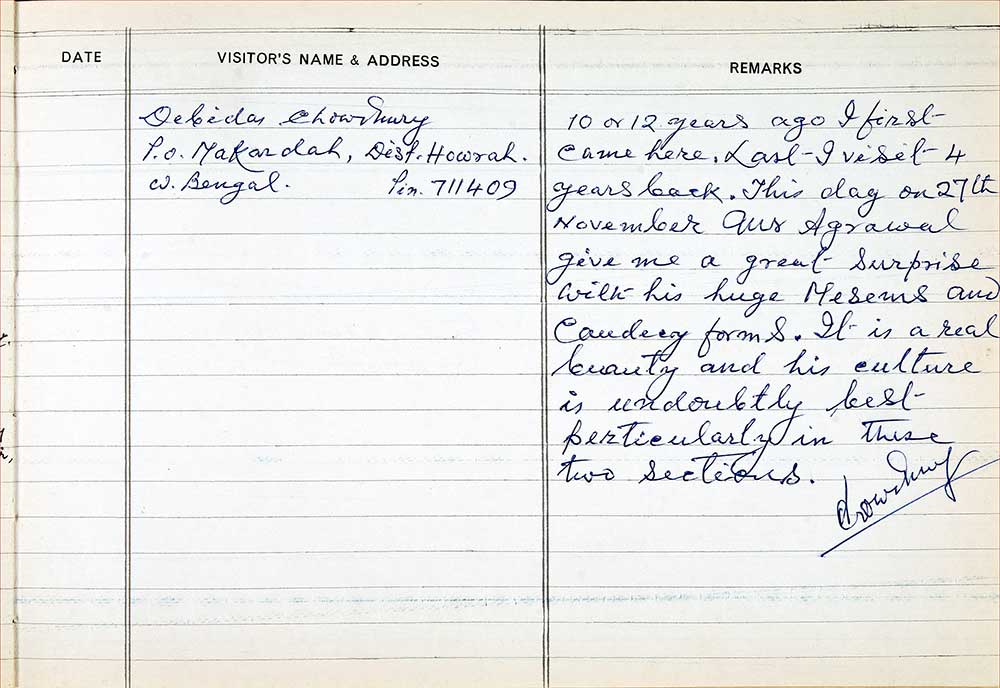 DATE
VISITOR'S NAME & ADDRESS
REMARKS
Debidas Chowdhury
P.O. Makardah, Dist. Howrah.
W. Bengal. Pin. 711409
10 or 12 years ago I first
came here. Last I visit 4
years back. This day on 27th
November Agrawal
give me a great surprise
with his huge Mesems and
forms. It is a real
beauty and his culture
is undoubtly best
perticularly in these
two sections.
Chowdhury